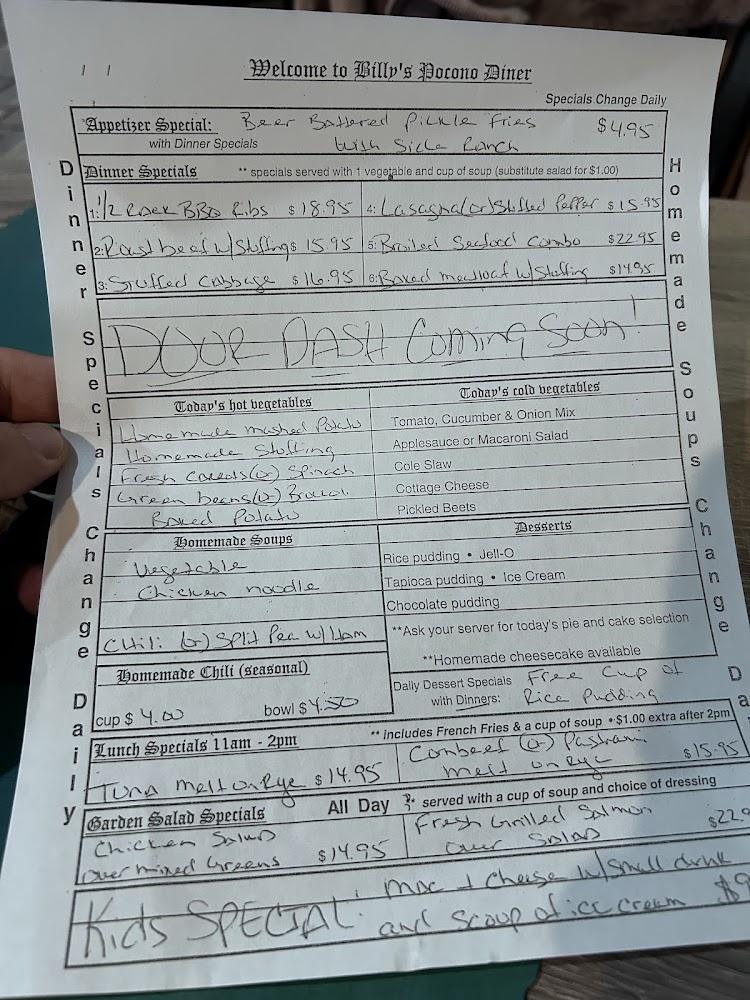 Welcome to Billy's Pocono Diner
Specials Change Daily
Appetizer Special: Beer Battered Pickle Fries $4.95
with Dinner Specials with Side Ranch
Dinner Specials ** specials served with 1 vegetable and cup of soup (substitute salad for $1.00)
1: 1/2 Rack BBQ Ribs $18.95
4: Lasagna (or) Stuffed Pepper $15.95
2: Roast beef w/ Stuffing $15.95
5: Broiled Seafood Combo $22.95
3: Stuffed Cabbage $16.95
6: Baked meatloaf w/ Stuffing $14.95
DOOR DASH Coming Soon!
Today's hot vegetables
Homemade mashed Potato
Homemade Stuffing
Fresh Carrots (or) Spinach
Green beans (or) Broccoli
Baked Potato
Today's cold vegetables
Tomato, Cucumber & Onion Mix
Applesauce or Macaroni Salad
Cole Slaw
Cottage Cheese
Pickled Beets
Homemade Soups
Vegetable
Chicken noodle
Chili (or) Split Pea w/ Ham
Homemade Chili (seasonal)
cup $ 4.00 bowl $4.50
Desserts
Rice pudding • Jell-O
Tapioca pudding • Ice Cream
Chocolate pudding
**Ask your server for today's pie and cake selection
**Homemade cheesecake available
Daily Dessert Specials Free Cup of
with Dinners: Rice Pudding
Lunch Specials 11am - 2pm ** includes French Fries & a cup of soup • $1.00 extra after 2pm
Tuna melt on Rye $14.95
Cornbeef (or) Pastrami
melt on Rye $15.95
Garden Salad Specials All Day served with a cup of soup and choice of dressing
Chicken Salad
over mixed Greens $14.95
Fresh Grilled Salmon
over Salad $22.9
Kids SPECIAL: Mac + Cheese w/ small drink
and scoop of ice cream $9
Dinner Specials Change Daily
Homemade Soups Change Da